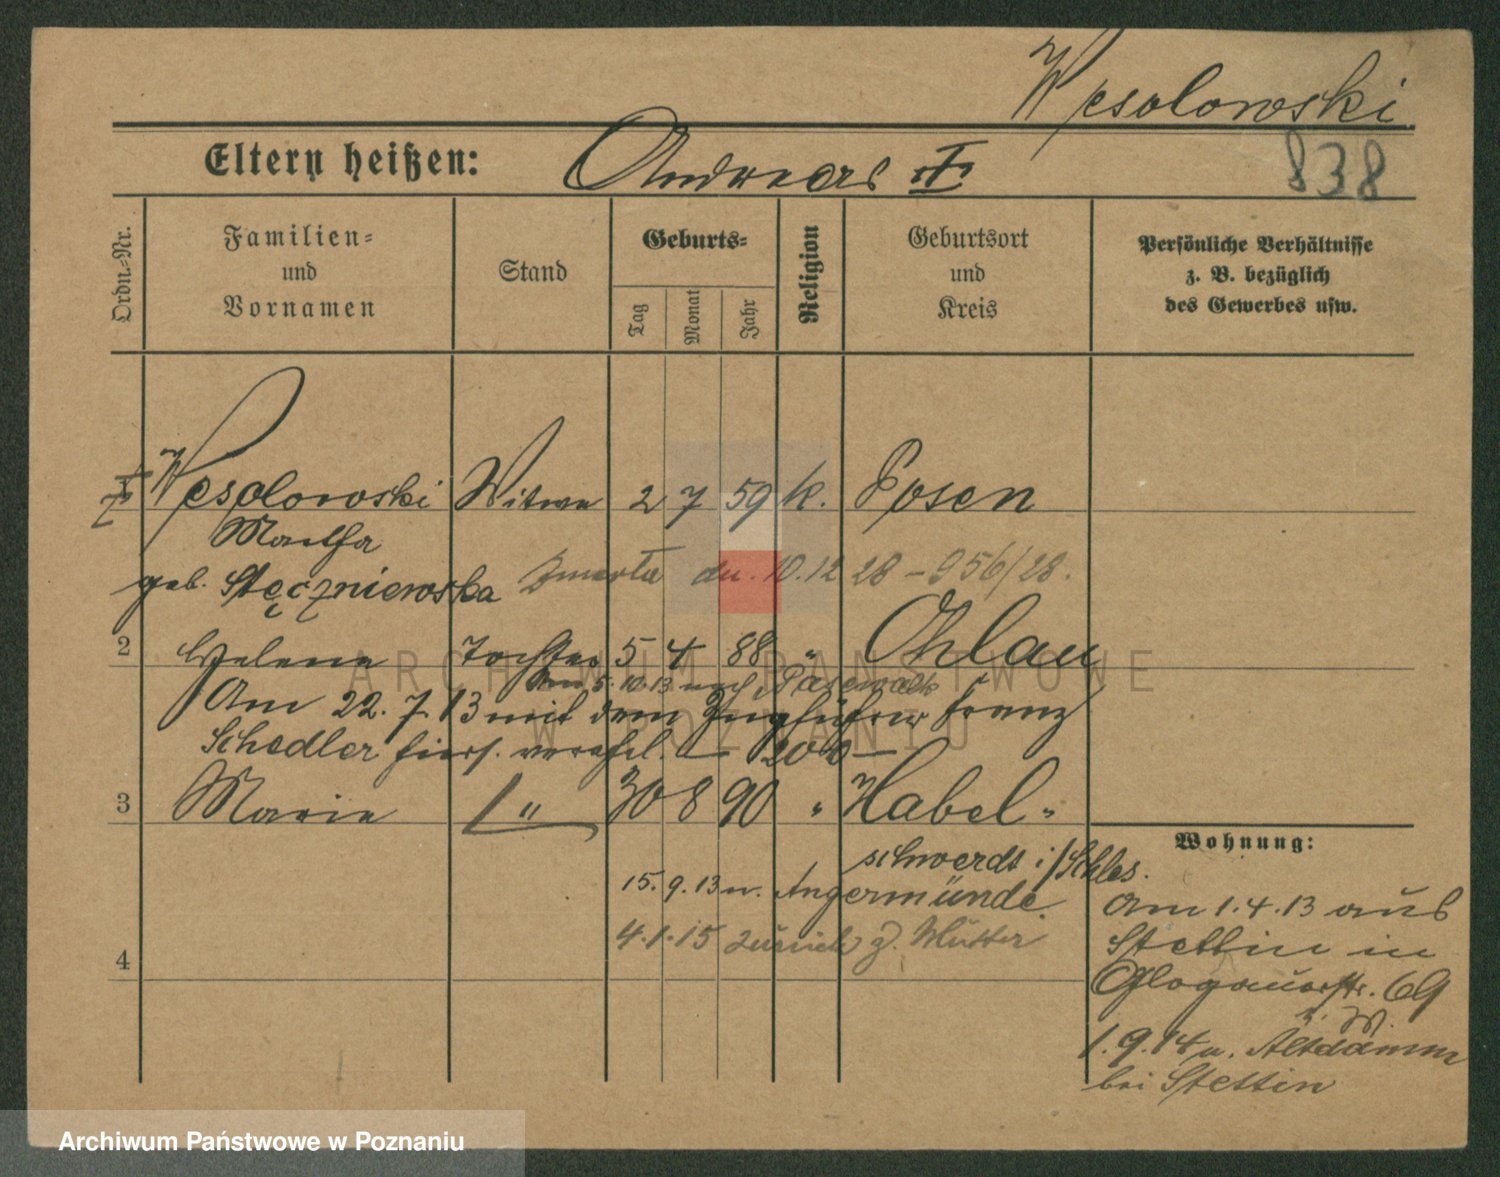 Wesolowski
Eltern heißen: Andreas †
838
Ordn.-Nr.
Familien-
und
Vornamen
Stand
Geburts-
Tag
Monat
Jahr
Religion
Geburtsort
und
Kreis
Persönliche Verhältnisse
z. B. bezüglich
des Gewerbes usw.
† Wesolowski Witwe 2 7 59 k. Posen
Martha
geb. Stęczniewska Zmarła dn. 10.12 28 – 956/28.
2 Helene Tochter 5 4 88 " Ohlau
Am 5.10.13 nach Pasewalk
Am 22.7.13 mit dem Zugführer Franz
Schedler hier verehel. — 200 —
3 Marie " 30 8 90 " Habel-
schwerdt i/Schles.
15.9.13 n. Angermünde.
4.1.15 zurück z. Mutter
4
Wohnung:
Am 1.4.13 aus
Stettin in
Glogauerstr. 69
1.9.14 n. Altdamm
bei Stettin
ARCHIWUM PAŃSTWOWE
W POZNANIU
Archiwum Państwowe w Poznaniu